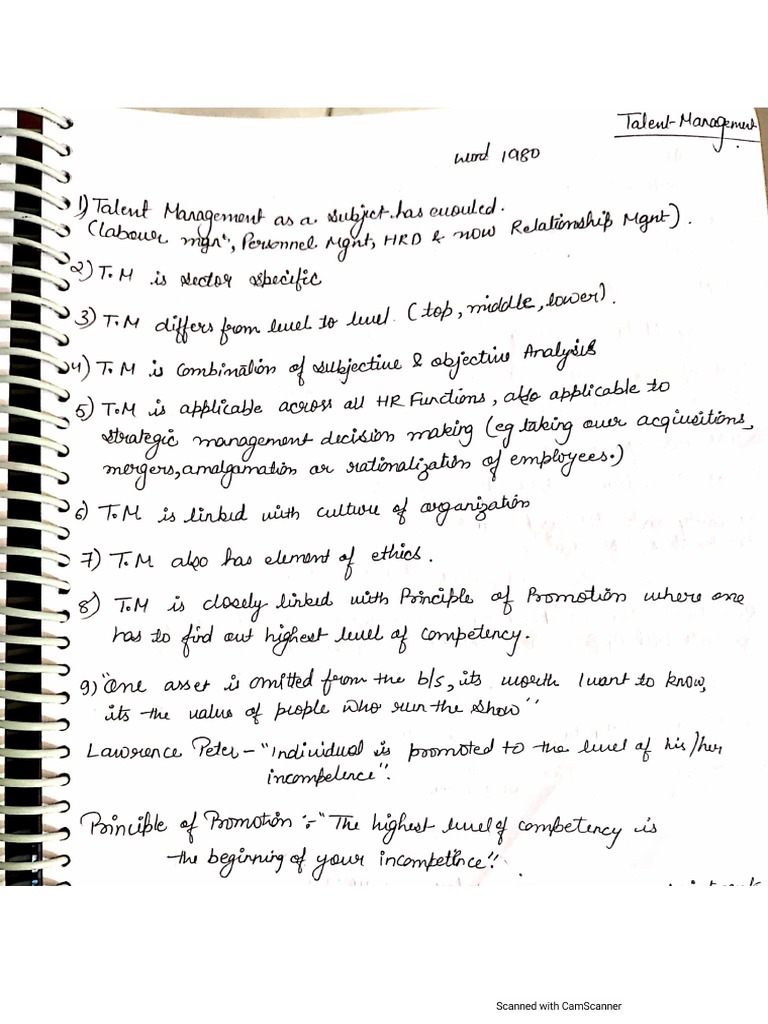 Talent Management
word 1980
1) Talent Management as a subject has evolved.
(Labour mgnt, Personnel Mgnt, HRD & now Relationship Mgnt).
2) T.M is sector specific
3) T.M differs from level to level. (top, middle, lower).
4) T.M is combination of subjective & objective Analysis
5) T.M is applicable across all HR Functions, also applicable to
strategic management decision making (eg taking over acqiusitions,
mergers, amalgamation or rationalization of employees.)
6) T.M is linked with culture of organization
7) T.M also has element of ethics.
8) T.M is closely linked with Principle of Promotion where one
has to find out highest level of competency.
9) "One asset is omitted from the b/s, its worth I want to know,
its the value of people who run the show"
Lawrence Peter - "Individual is promoted to the level of his/her
incompetence".
Principle of Promotion :- "The highest level of competency is
the beginning of your incompetence".
Scanned with CamScanner